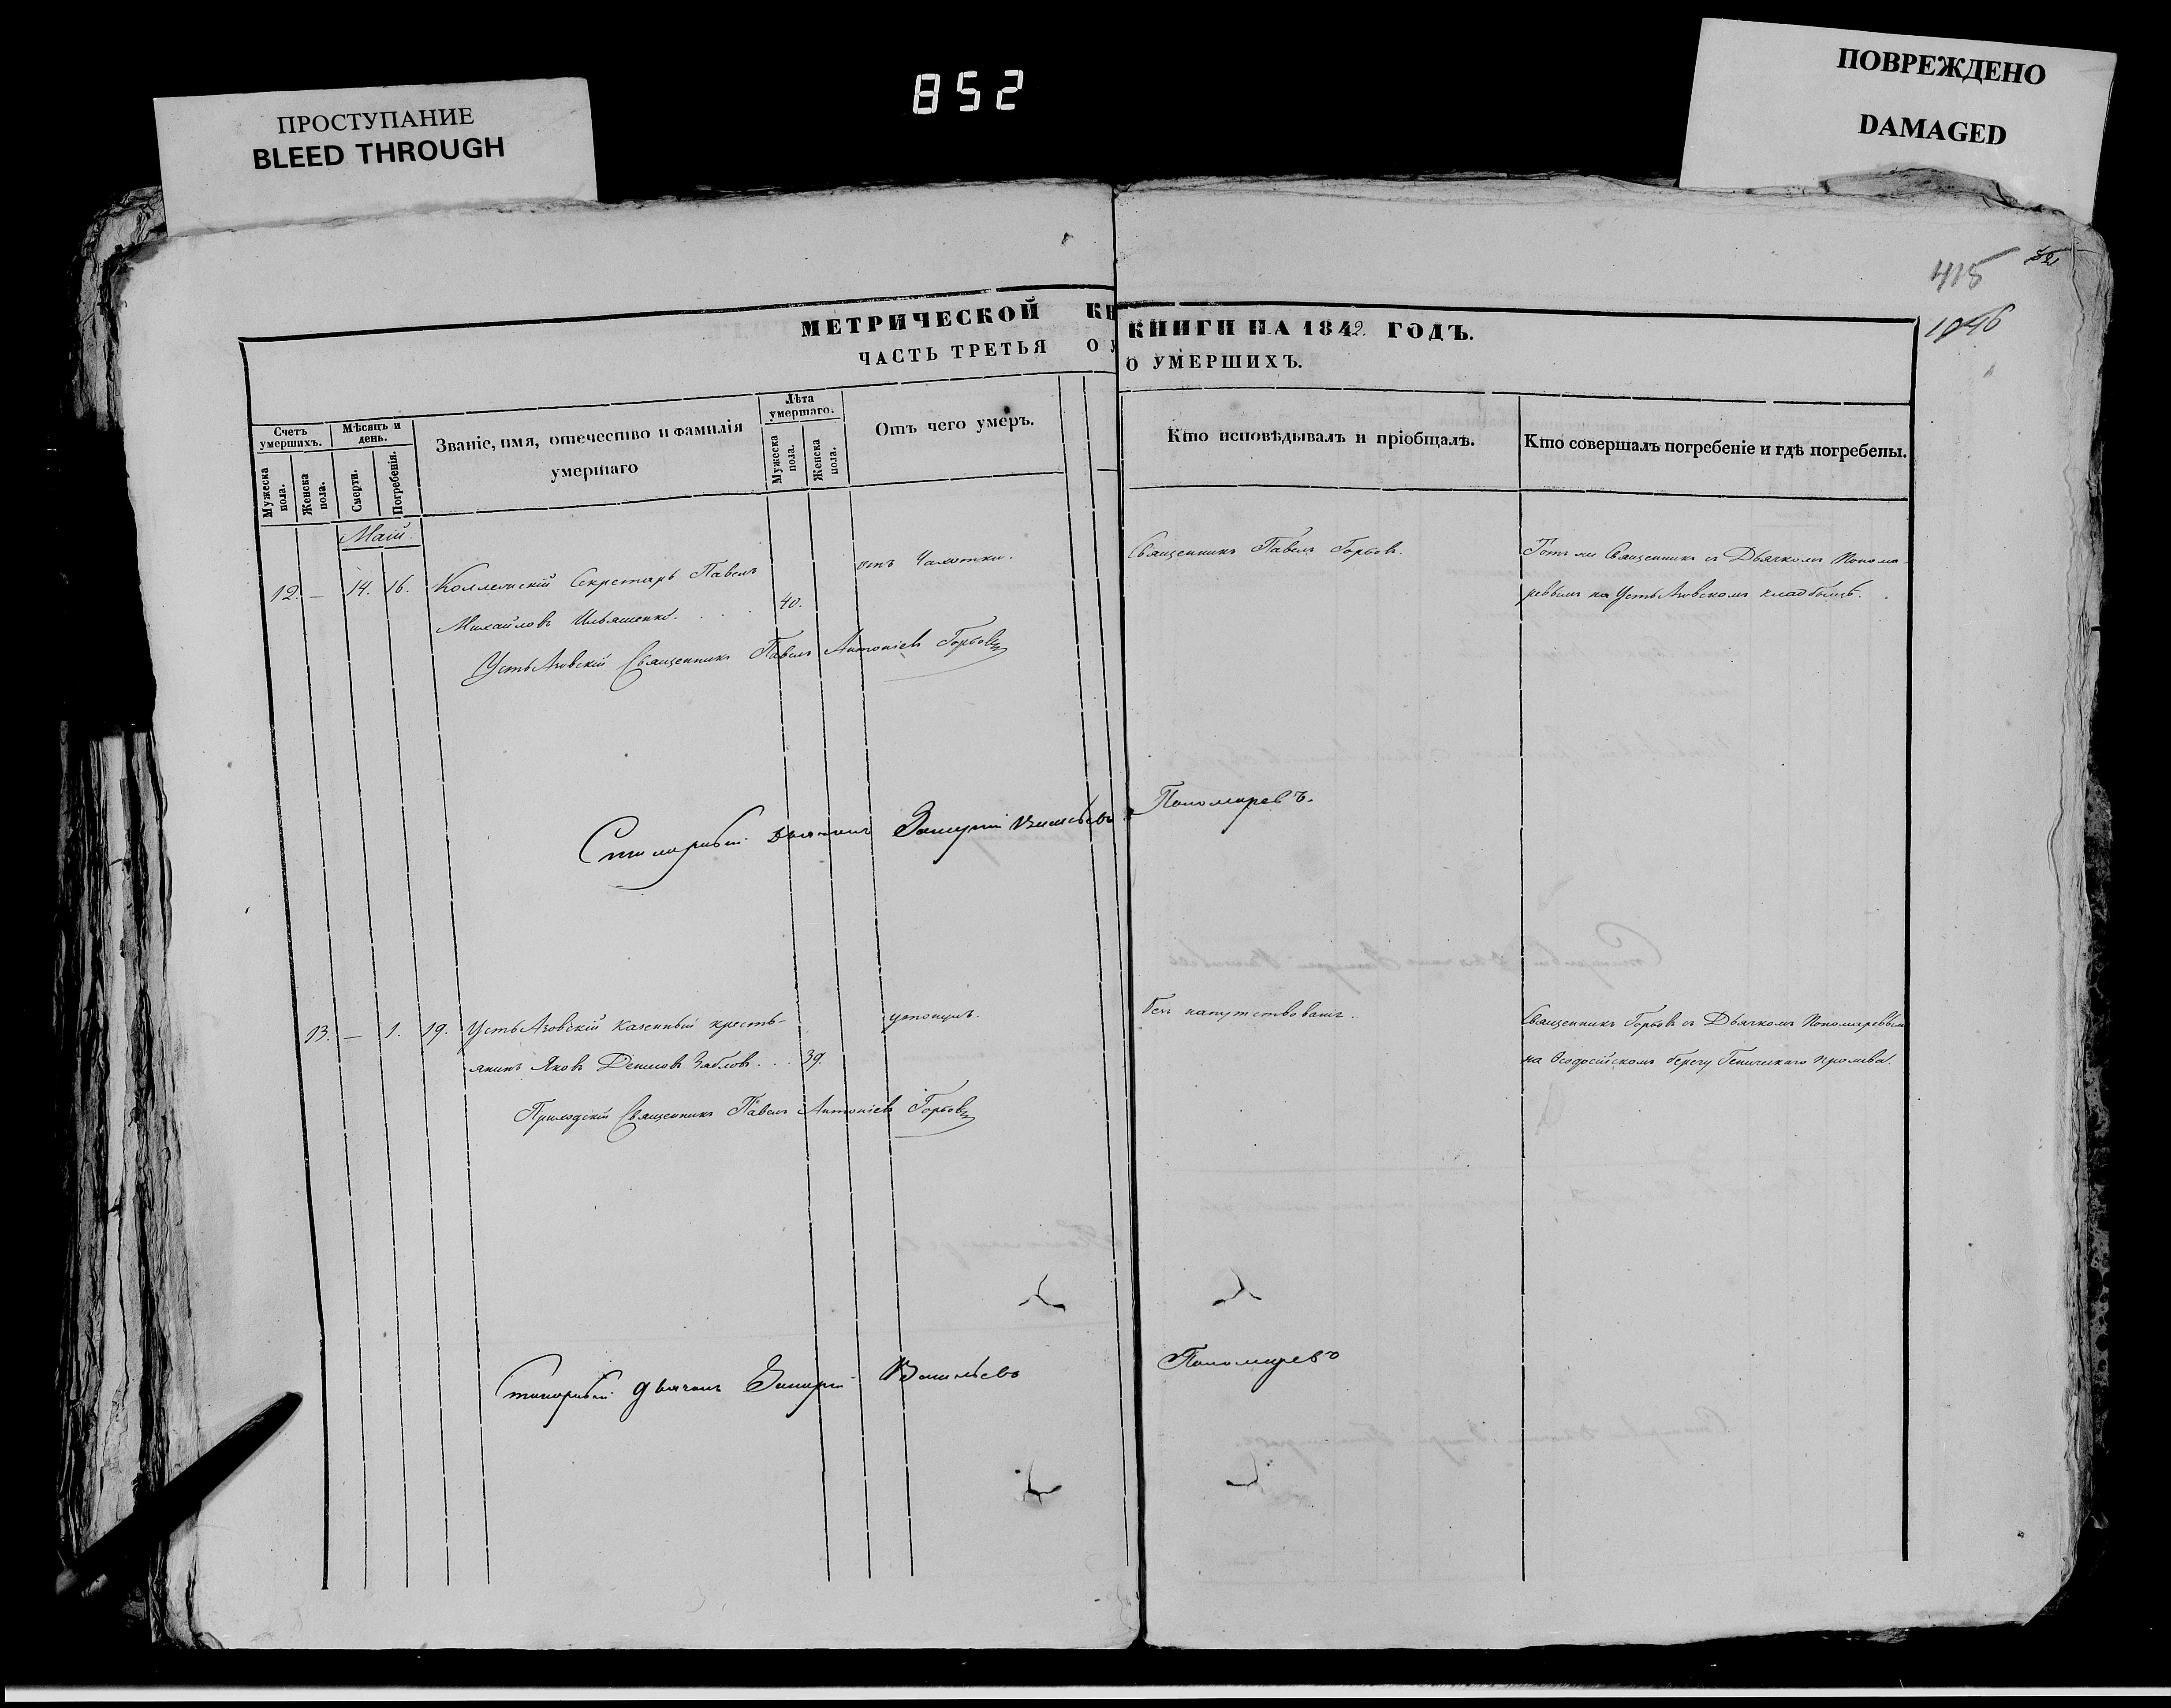 852
ПРОСТУПАНИЕ
BLEED THROUGH
ПОВРЕЖДЕНО
DAMAGED
415
1046
МЕТРИЧЕСКОЙ КН
КНИГИ НА 1842. ГОДЪ.
ЧАСТЬ ТРЕТЬЯ О У
О УМЕРШИХЪ.
Счетъ умершихъ.
Мужеска пола.
Женска пола.
Мѣсяцъ и день.
Смерти.
Погребенія.
Званіе, имя, отечество и фамилія
умершаго
Лѣта умершаго.
Мужеска пола.
Женска пола.
Отъ чего умеръ.
Кто исповѣдывалъ и пріобщалъ.
Кто совершалъ погребеніе и гдѣ погребены.
Маій.
12. — 14. 16. Коллежскій Секретарь Павелъ
Михайловъ Ильяшенко. 40.
отъ Чахотки.
Священникъ Павелъ Горбовъ.
Тотъ же Священникъ съ Дьячкомъ Понома-
ревымъ на УстьАзовскомъ кладбищѣ.
УстьАзовскій Священникъ Павелъ Антоніевъ Горбовъ
дьячокъ Захарій Васильевъ Пономаревъ.
13. — 1. 19. УстьАзовскій Казенный кресть-
янинъ Яковъ Денисовъ Зябловъ 39.
утонулъ.
безъ напутствованія.
Священникъ Горбовъ съ Дьячкомъ Пономаревымъ
на Ѳеодосійскомъ берегу Геническаго пролива.
Приходскій Священникъ Павелъ Антоніевъ Горбовъ
дьячокъ Захарій Васильевъ Пономаревъ